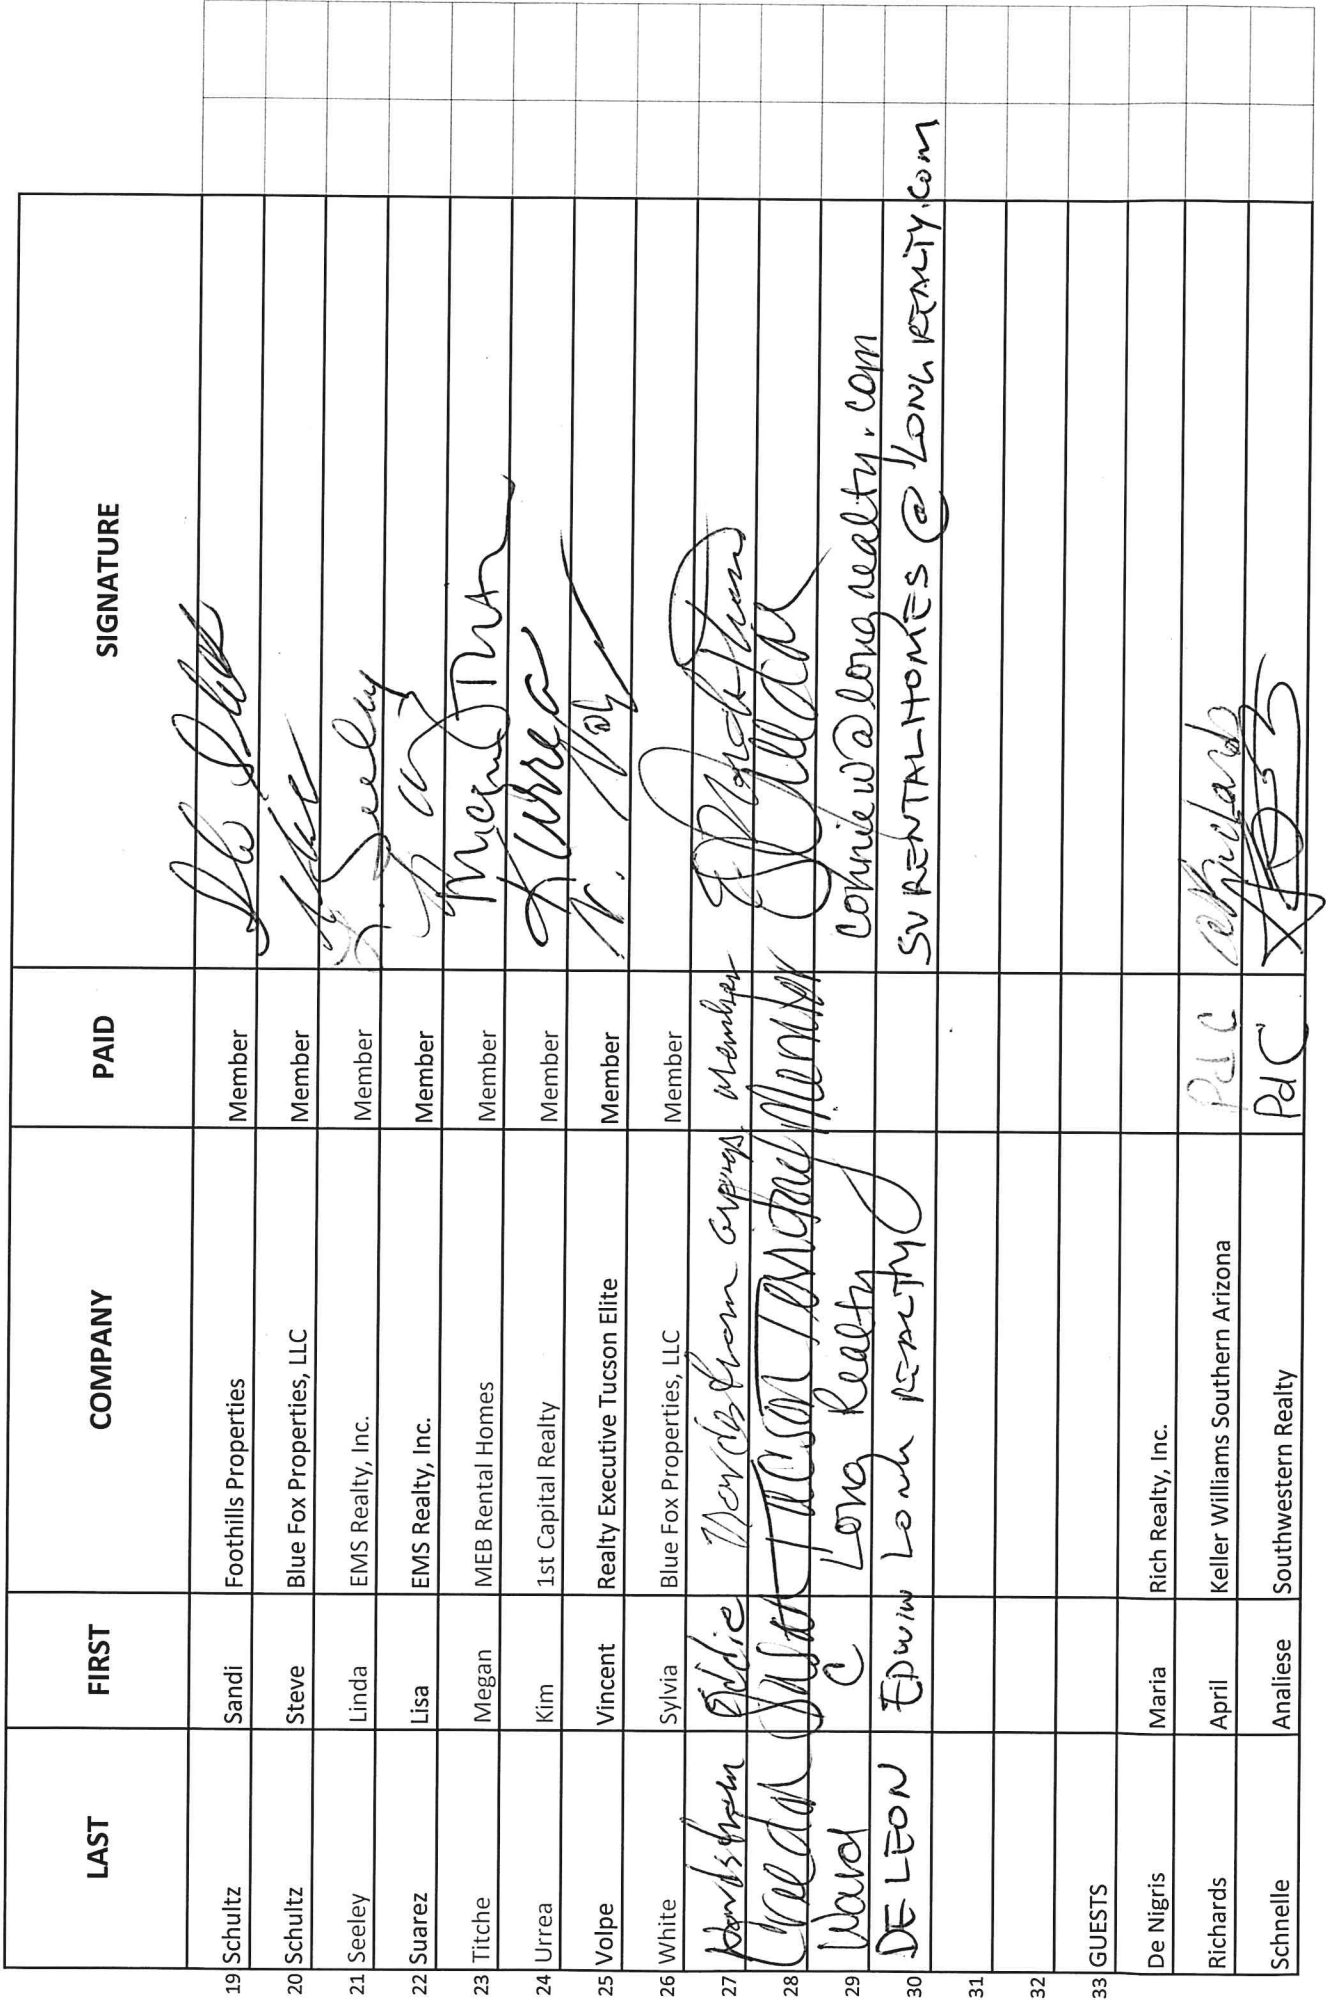 LAST FIRST COMPANY PAID SIGNATURE
19 Schultz Sandi Foothills Properties Member
20 Schultz Steve Blue Fox Properties, LLC Member
21 Seeley Linda EMS Realty, Inc. Member L Seeley
22 Suarez Lisa EMS Realty, Inc. Member
23 Titche Megan MEB Rental Homes Member
24 Urrea Kim 1st Capital Realty Member K Urrea
25 Volpe Vincent Realty Executive Tucson Elite Member
26 White Sylvia Blue Fox Properties, LLC Member
27 Eddie Member
28 Tucson Member
29 Ward C Long Realty conniew@longrealty.com
30 DE LEON EDWIN LONG REALTY SVRENTALHOMES@LONGREALTY.COM
31
32
33 GUESTS
De Nigris Maria Rich Realty, Inc.
Richards April Keller Williams Southern Arizona Pd C
Schnelle Analiese Southwestern Realty Pd C